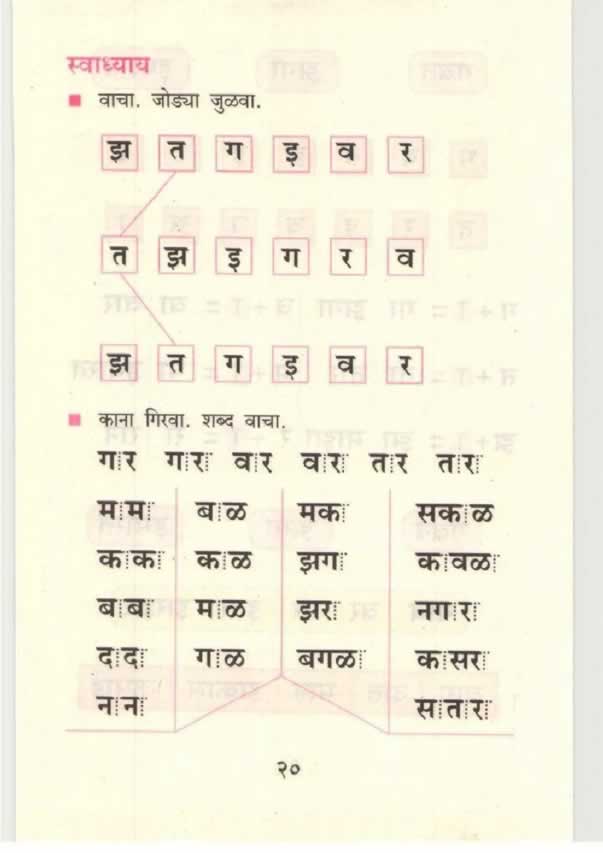 स्वाध्याय
वाचा. जोड्या जुळवा.
झ त ग इ व र
त झ इ ग र व
झ त ग इ व र
काना गिरवा. शब्द वाचा.
गार गारा वार वारा तार तारा
मामा बाळ मका सकाळ
काका काळ झगा कावळा
बाबा माळ झरा नगारा
दादा गाळ बगळा कासरा
नाना सातारा
२०